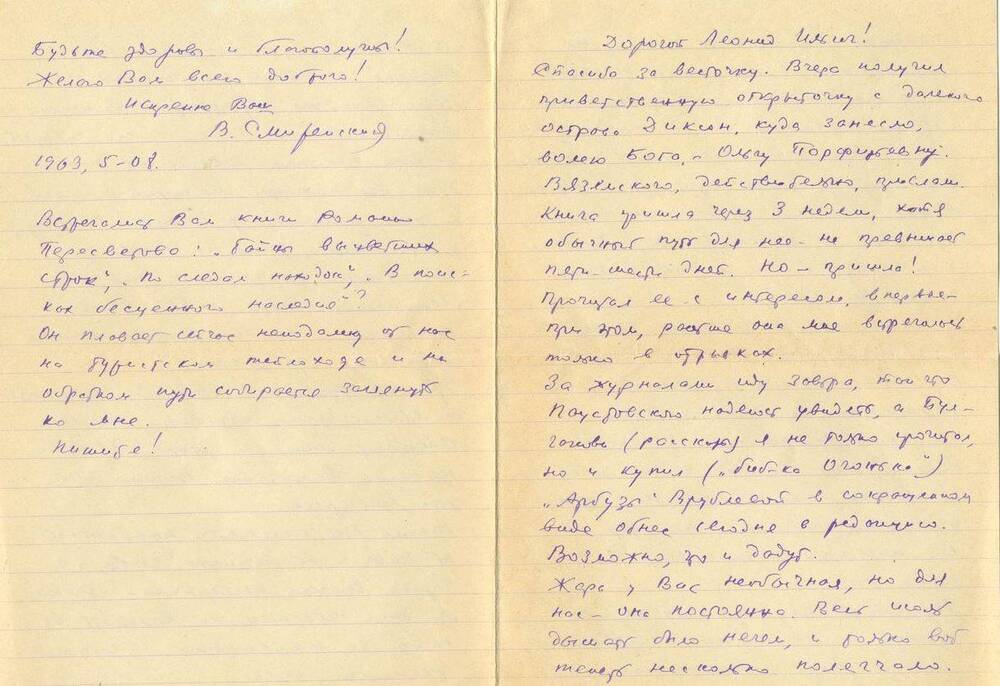 Дорогой Леонид Ильич!
Спасибо за весточку. Вчера получил
приветственную открыточку с далекого
острова Диксон, куда занесло,
волею Бога, - Ольгу Порфирьевну.
Вяземского, действительно, прислали.
Книга пришла через 3 недели, хотя
обычный путь для нее - не превышает
пяти-шести дней. Но - пришла!
Прочитал ее с интересом, впервые-
при этом, раньше она мне встречалась
только в отрывках.
За журналами иду завтра, так что
Паустовского надеюсь увидеть, а Бул-
гакова (рассказы) я не только прочитал,
но и купил ("биб-ка Огонька")
"Арбузы" Врублевой в сокращенном
виде отнес сегодня в редакцию.
Возможно, что и дадут.
Жара у Вас необычная, но для
нас - она постоянна. Весь июль
дышать было нечем, и только вот
теперь несколько полегчало.
Будьте здоровы и благополучны!
Желаю Вам всего доброго!
Искренно Ваш
В. Смиренский
1963, 5-08.
Встречались Вам книги Романа
Пересветова: "Тайны выцветших
строк", "По следам находок", "В поис-
ках бесценного наследия"?
Он плавает сейчас неподалеку от нас
на туристском теплоходе и на
обратном пути собирается заглянуть
ко мне.
Пишите!